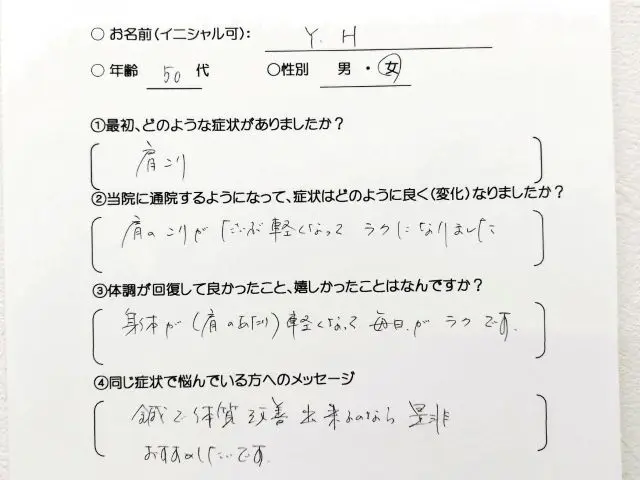 ○ お名前(イニシャル可): Y. H
○ 年齢 50 代 ○性別 男 ・ 女
①最初、どのような症状がありましたか?
肩こり
②当院に通院するようになって、症状はどのように良く(変化)なりましたか?
肩の こりが だいぶ 軽くなって ラクになりました
③体調が回復して良かったこと、嬉しかったことはなんですか?
身体が (肩のあたり) 軽くなって 毎日が ラクです.
④同じ症状で悩んでいる方へのメッセージ
鍼で体質改善出来るのなら 是非
おすすめしたいです.